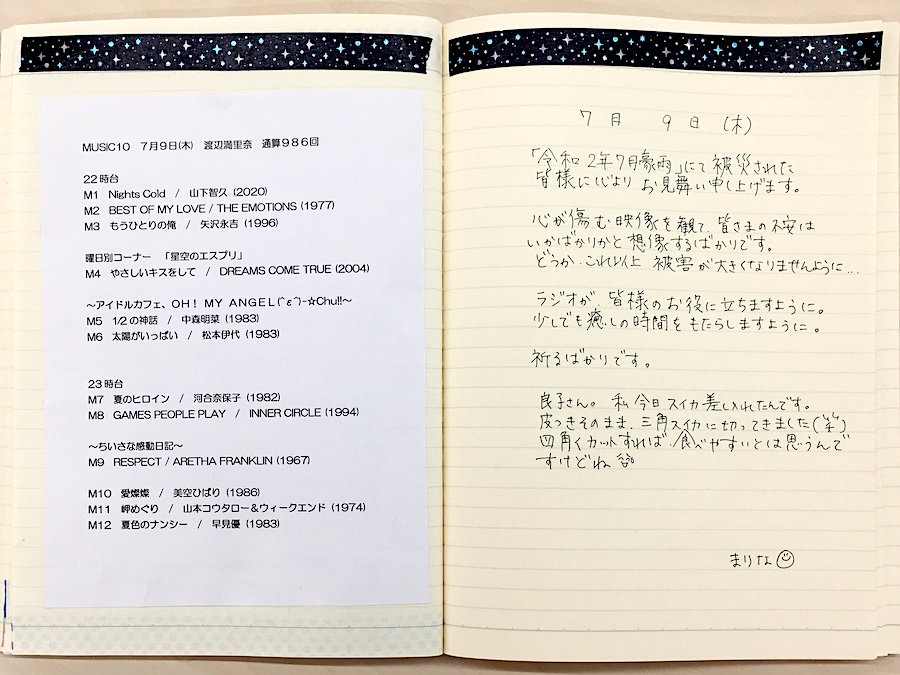 MUSIC10 7月9日(木) 渡辺満里奈 通算986回
22時台
M1 Nights Cold / 山下智久 (2020)
M2 BEST OF MY LOVE / THE EMOTIONS (1977)
M3 もうひとりの俺 / 矢沢永吉 (1996)
曜日別コーナー 「星空のエスプリ」
M4 やさしいキスをして / DREAMS COME TRUE (2004)
～アイドルカフェ、OH! MY ANGEL(＾ε＾)-☆Chu!!～
M5 1/2の神話 / 中森明菜 (1983)
M6 太陽がいっぱい / 松本伊代 (1983)
23時台
M7 夏のヒロイン / 河合奈保子 (1982)
M8 GAMES PEOPLE PLAY / INNER CIRCLE (1994)
～ちいさな感動日記～
M9 RESPECT / ARETHA FRANKLIN (1967)
M10 愛燦燦 / 美空ひばり (1986)
M11 岬めぐり / 山本コウタロー＆ウィークエンド (1974)
M12 夏色のナンシー / 早見優 (1983)
7月 9日 (木)
「令和2年7月豪雨」にて被災された
皆様に心より お見舞い申し上げます。
心が傷む映像を観て、皆さまの不安は
いかばかりかと想像するばかりです。
どうか、これ以上 被害が大きくなりませんように…
ラジオが、皆様のお役に立ちますように。
少しでも癒しの時間をもたらしますように。
祈るばかりです。
良子さん。私 今日スイカ差し入れたんです。
皮つきそのまま、三角スイカに切ってきました(笑)
四角くカットすれば、食べやすいとは思うんで
すけどね
まりな